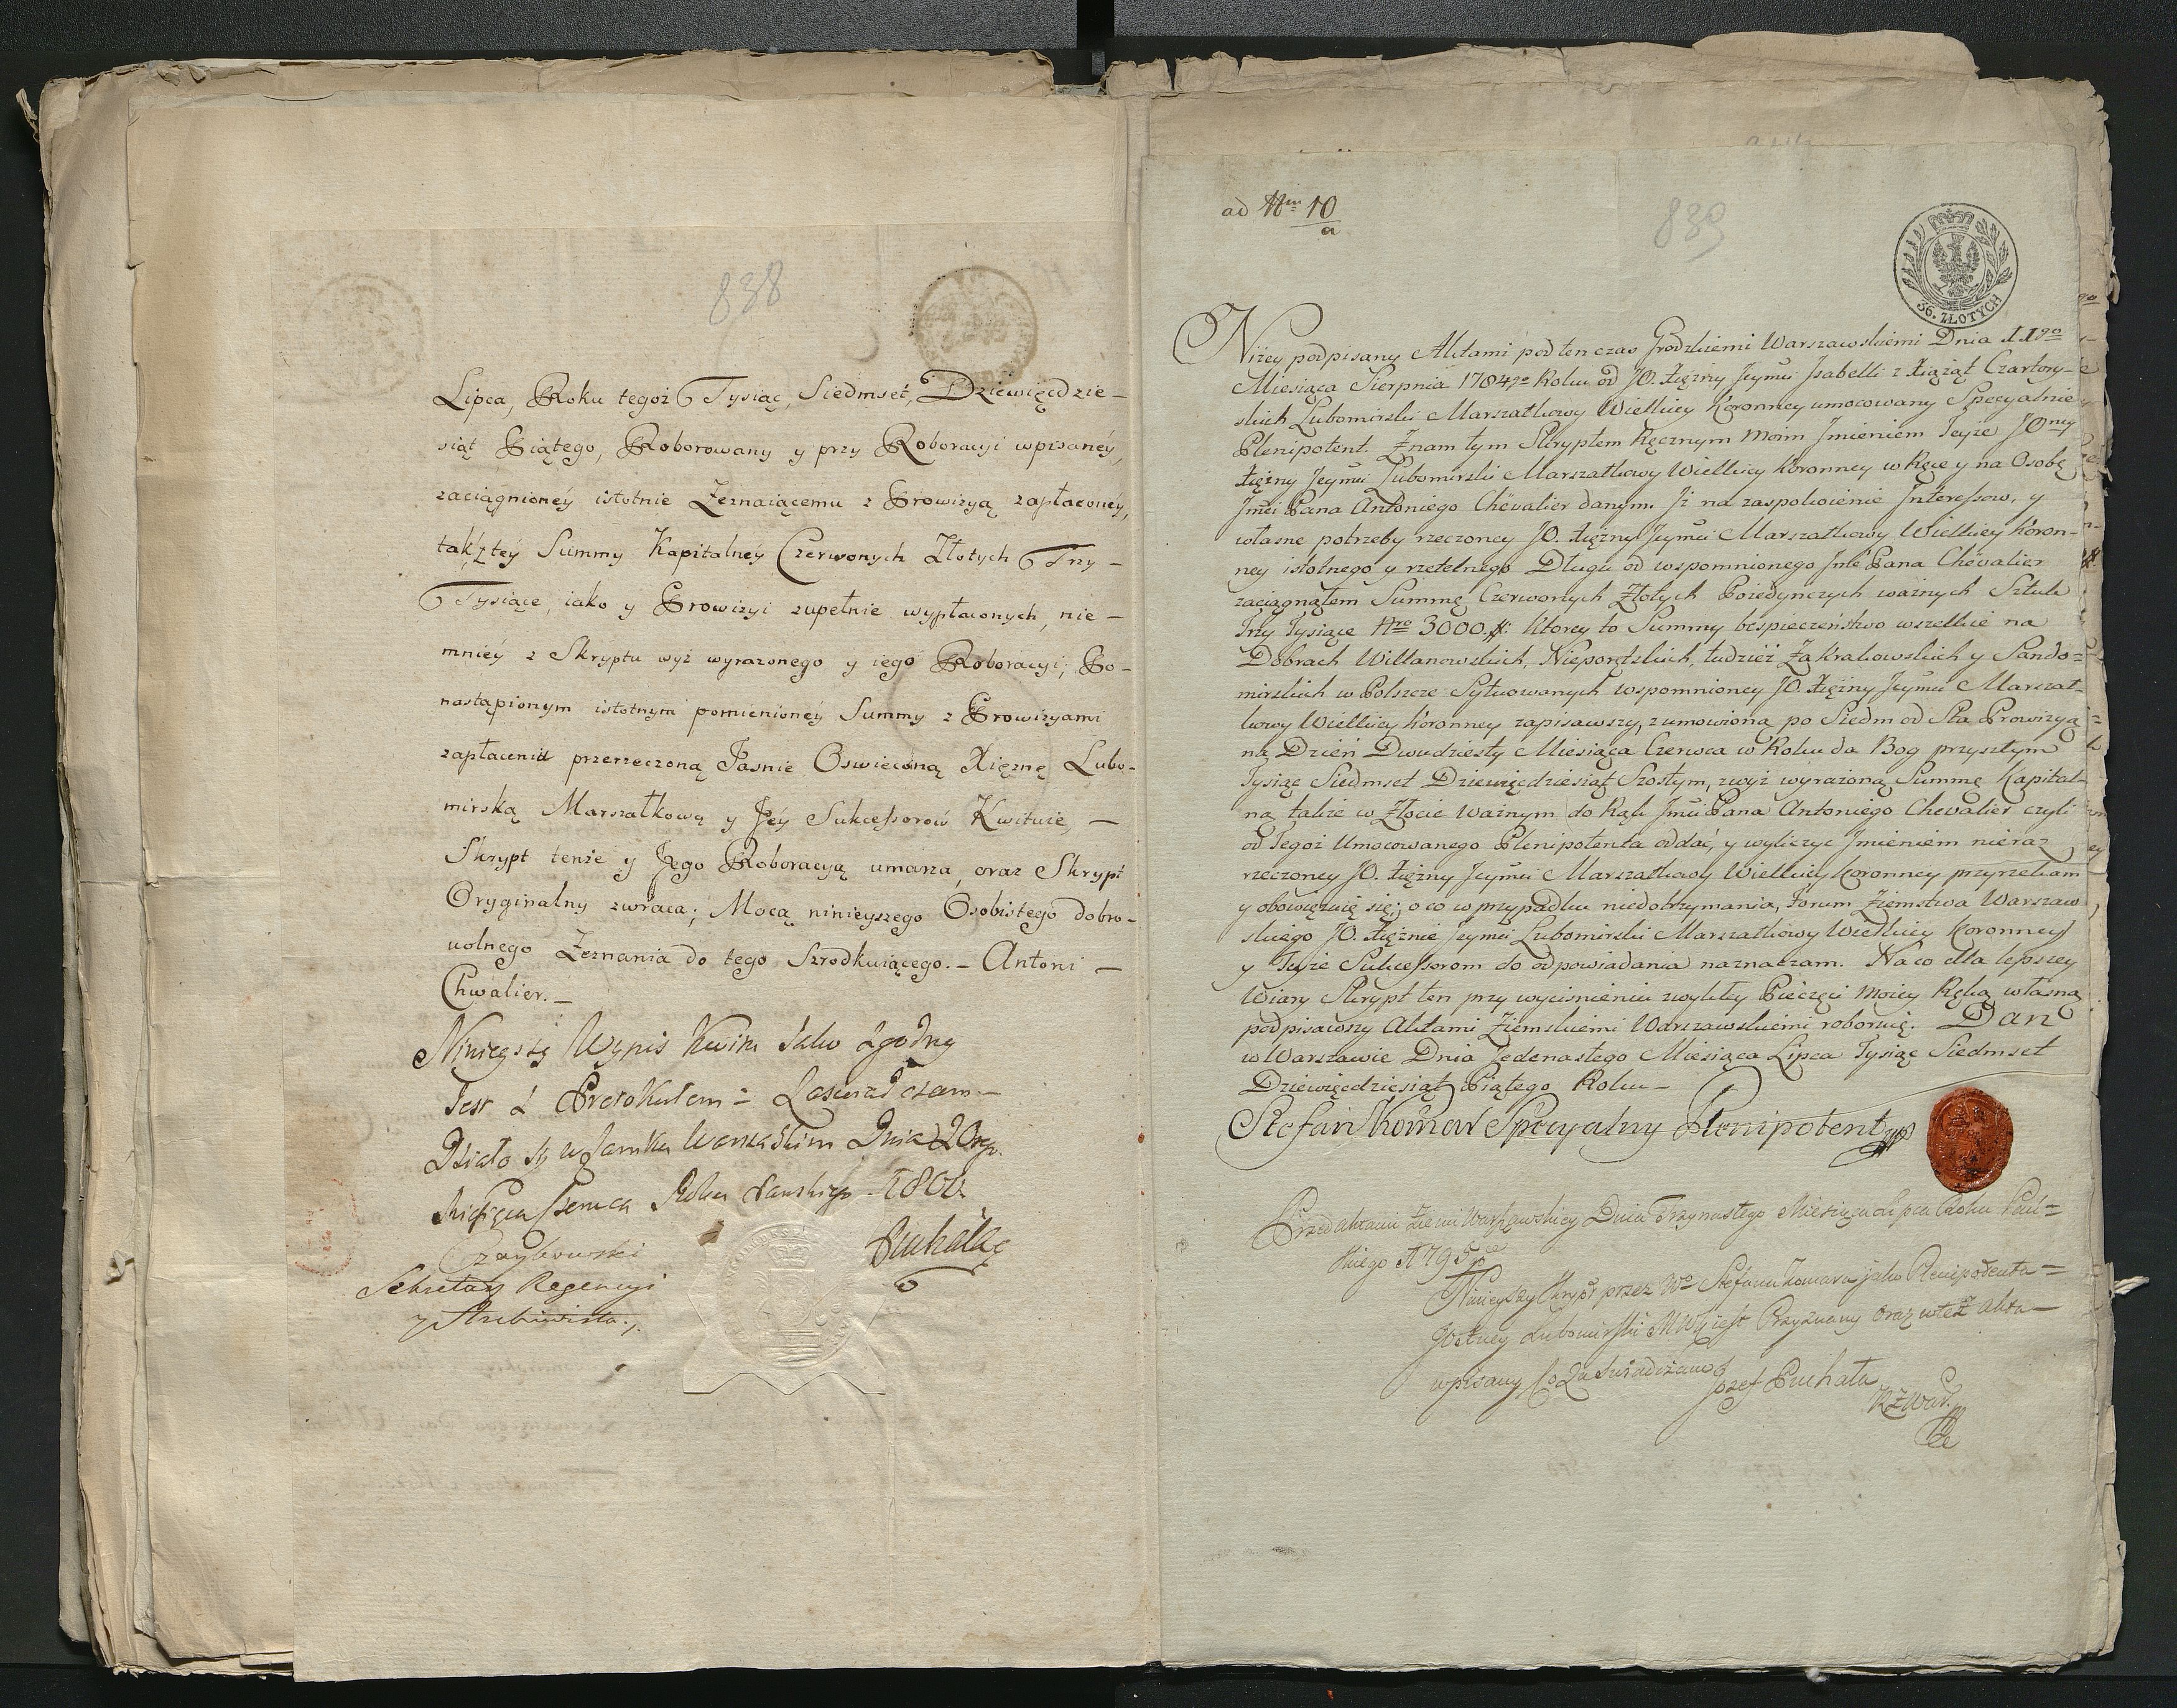 838
Lipca, Roku tegoż Tysiąc, Siedmset, Dziewięćdzie-
siąt Piątego, Roborowany y przy Roboracyi wpisaney,
zaciągnioney istotnie Zeznaiącemu z Prowizyą zapłaconey,
tak z tey Summy Kapitalney Czerwonych Złotych Trzy-
Tysiące, iako y Prowizyi zupełnie wypłaconych, nie-
mniey z Skryptu wyż wyrażonego y iego Roboracyi; Po-
nastąpionym istotnym pomienioney Summy z Prowizyami
zapłaceniu przerzeczoną Jasnie Oswieconą Xiężnę Lubo-
mirską Marszałkową y Jey Sukcessorow Kwituie, -
Skrypt tenże y Jego Roboracyą umarza, oraz Skrypt
Oryginalny zwraca; Mocą ninieyszego Osobistego dobro-
wolnego Zeznania do tego Szrodkuiącego. - Antoni -
Chwalier. -
Ninieyszy Wypis Kwitu Jako Zgodny
Jest z Protokułem = Zaswiadczam -
Działo się w Zamku Warszaskim Dnia 20go
Miesiąca Czerwca Roku Panskiego 1800.
Puchałą
Sekretarz Regencyi
y Archiwista.
ad Nrm 10
a
839
36. ZŁOTYCH
Niżey podpisany Aktami pod ten czas Grodzkiemi Warszawskiemi Dnia 11go
Miesiąca Sierpnia 1784go Roku od JO. Xiężny Jeymci Jsabelli z Xiążąt Czartory-
skich Lubomirski Marszałkowy Wielkiey Koronney umocowany Specyalnie
Plenipotent. Znam tym Skryptem Ręcznym Moim Jmieniem Teyże JOney
Xiężny Jeymci Lubomirski Marszałkowy Wielkiey Koronney w Ręce y na Osobę
Jmci Pana Antoniego Chevalier danym. Jż na zaspokoienie Interessow, y
własne potrzeby rzeczoney JO. Xiężny Jeymci Marszałkowy Wielkiey Koron-
ney istotnego y rzetelnego Długu od wspomnionego Jmć Pana Chevalier
zaciągnąłem Summę Czerwonych Złotych Poiedynczych ważnych Sztuk
Trzy Tysiące Nro 3000. Ktorey to Summy bespieczeństwo wszelkie na
Dobrach Willanowskich, Nieporętskich, tudzież Zakrakowskich y Sando=
mirskich w Polszcze Sytuowanych wspomnioney JO. Xiężny Jeymci Marszał-
kowy Wielkiey Koronney zapisawszy, z umowioną po Siedm od Sta Prowizyą
na Dzień Dwudziesty Miesiąca Czerwca w Roku da Bog przyszłym
Tysiąc Siedmset Dziewięćdziesiąt Szostym, zwyż wyrażoną Summę Kapital-
ną także w Złocie ważnym do Rąk Jmci Pana Antoniego Chevalier czyli
od Tegoż Umocowanego Plenipotenta oddać, y wyliczyc Jmieniem nieraz
rzeczoney JO. Xiężny Jeymci Marszałkowy Wielkiey Koronney przyrzekam
y obowięzuię się; o co w przypadku niedotrzymania, Forum Ziemstwa Warszaw-
skiego JO. Xiężnie Jeymci Lubomirski Marszałkowy Wielkiey Koronney
y Teyże Sukcessorom do odpowiadania naznaczam. Na co dla lepszey
Wiary Skrypt ten przy wycisnieniu zwykłey Pieczęci Moiey Ręką własną
podpisawszy Aktami Ziemskiemi Warszawskiemi roboruię. Dan
w Warszawie Dnia Jedenastego Miesiąca Lipca Tysiąc Siedmset
Dziewięćdziesiąt Piątego Roku -
Stefan Komar Specyalny Plenipotent
Przed Aktami Ziemi Warszawskiey Dnia Trzynastego Miesiąca Lipca Roku Pań=
skiego 1795go
Ninieyszy Skrypt przez Wo Stefana Komara jako Plenipotenta=
JOXney Lubomirski MWK iest Przyznany oraz w też Akta-
wpisany, Co Zaswiadczam
Jozef Puchała
RZWar.